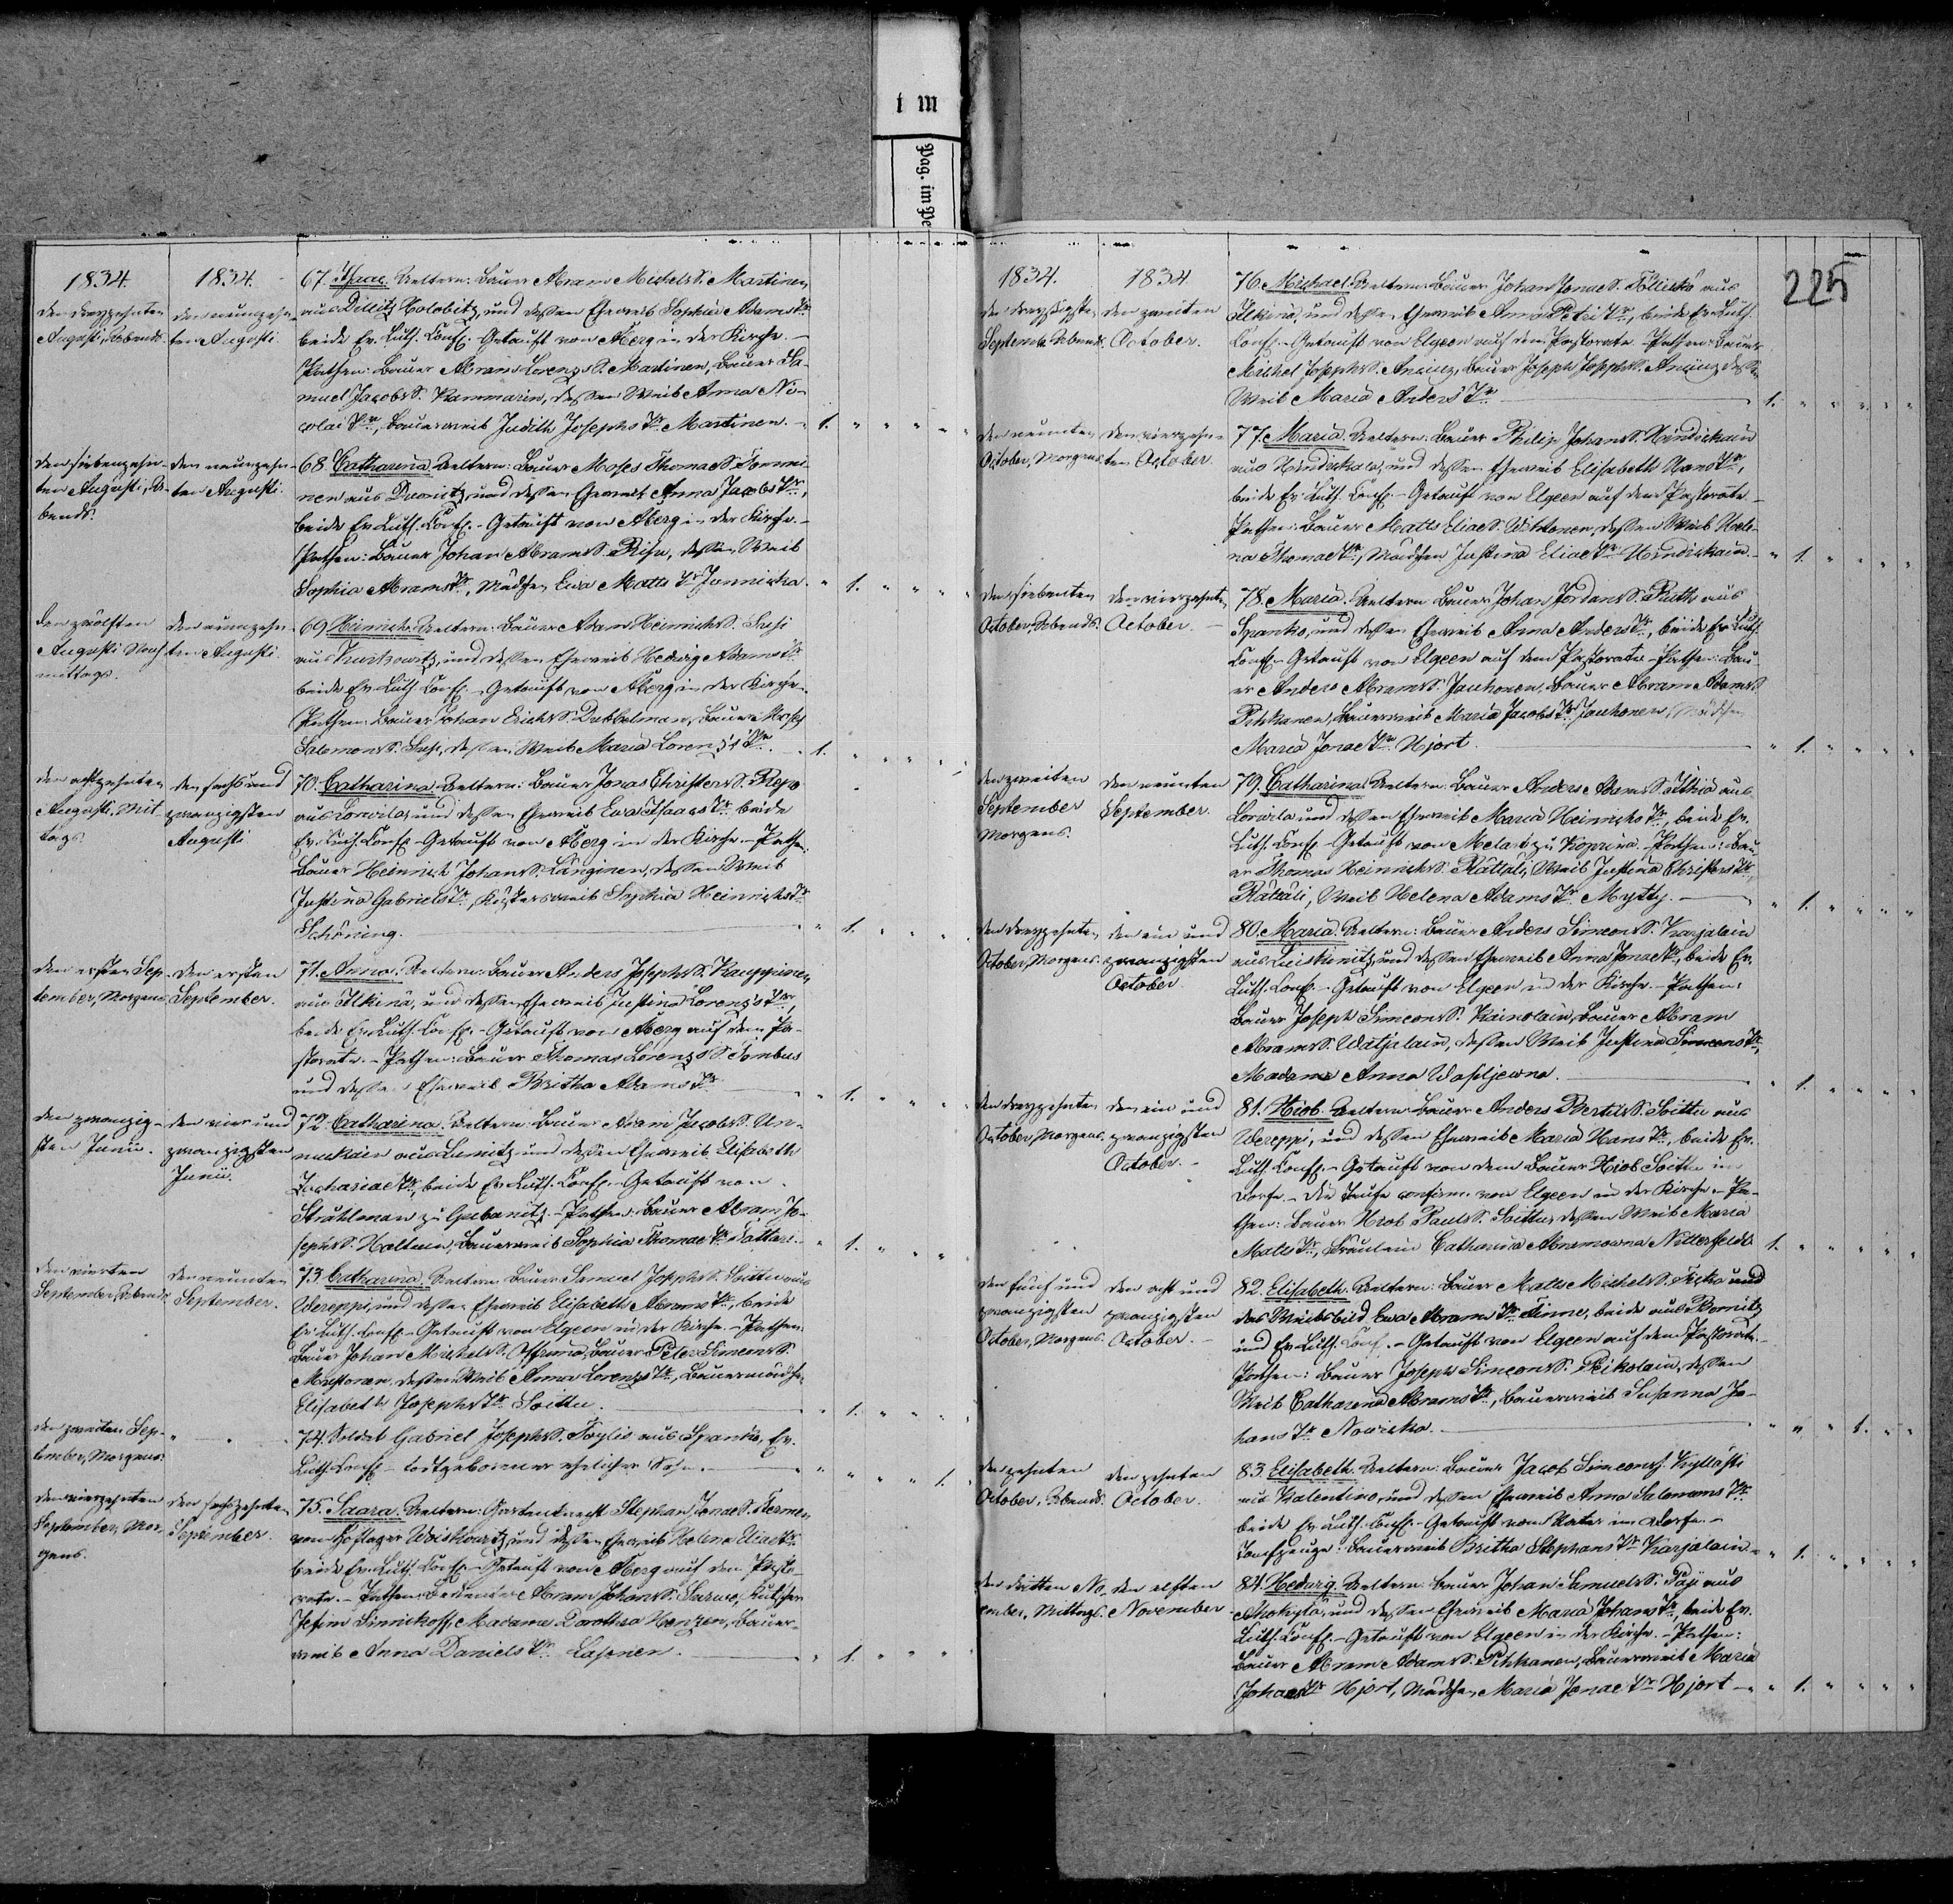 m t
Pag. im Pe
1834.
1834.
den dreyzehnten
Augusti, Abends.
den neunzehn-
ten Augusti.
67. Isaac. Aeltern: Bauer Abram Michels S. Martinen
aus Dilitz Holobitz, und dessen Eheweib Sophia Adams Tr.
beide Ev. Luth. Conf. - Getauft von Åberg in der Kirche. -
Pathen: Bauer Abram Lorenzs S. Martinen, Bauer Sa-
muel Jacobs S. Kammarin, dessen Weib Anna Ni-
colai Tr., Bauerweib Judith Josephs Tr. Martinen. - 1.
den siebenzehn-
ten Augusti, A-
bends.
den neunzehn-
ten Augusti.
68. Catharina. Aeltern: Bauer Moses Thomae S. Tommi-
nen aus und dessen Eheweib Anna Jacobs Tr.,
beide Ev. Luth. Conf. - Getauft von Åberg in der Kirche. -
Pathen: Bauer Johan Abrams S. dessen Weib
Sophia Abrams Tr., Mädchen Eva Matts Tr. Junnicka. 1.
den zwölften
Augusti Nach-
mittags.
den neunzehn-
ten Augusti.
69. Heinrich. Aeltern: Bauer Adam Heinrichs S. Susi
aus und dessen Eheweib Hedwig Adams Tr.
beide Ev. Luth. Conf. - Getauft von Åberg in der Kirche.
Pathen: Bauer Johan Erichs S. Dubbelman, Bauer Moses
Salomons S. Susi, dessen Weib Maria Lorenz's Tr. 1.
den achtzehnten
Augusti, Mit-
tags.
den sechs und
zwanzigsten
Augusti
70. Catharina. Aeltern: Bauer Jonas Christers S. Repo
aus Corwila, und dessen Eheweib Eva Isaacs Tr. beide
Ev. Luth. Conf. - Getauft von Åberg in der Kirche. - Pathen:
Bauer Heinrich Johans S. Länginen, dessen Weib
Justina Gabriels Tr., Küstersweib Sophia Heinrichs Tr.
Schöning. 1.
den ersten Sep-
tember, Morgens
den ersten
September.
71. Anna. Aeltern: Bauer Anders Josephs S. Kauppinen
aus Ilkina, und dessen Eheweib Justina Lorenz's Tr.,
beide Ev. Luth. Conf. - Getauft von Åberg auf dem Pa-
storate. - Pathen: Bauer Thomas Lorenz's S. Tombus
und dessen Eheweib Britha Adams Tr. 1.
den zwanzig-
sten Junii.
den vier und
zwanzigsten
Junii.
72. Catharina. Aeltern: Bauer Adam Jacobs S. Un-
nukain aus und dessen Eheweib Elisabeth
Zachariae Tr., beide Ev. Luth. Conf. - Getauft von
Stråhlman zu Gubanitz. - Pathen: Bauer Abram Jo-
sephs S. Bauerweib Sophia Thomae Tr. Tattari. 1.
den vierten
September, Abends
den neunten
September.
73. Catharina. Aeltern: Bauer Samuel Josephs S. Soittu aus
Wereppi, und dessen Eheweib Elisabeth Abrams Tr., beide
Ev. Luth. Conf. - Getauft von Elgeen in der Kirche. - Pathen:
Bauer Johan Michels S. Bauer Peter Simeons S.
dessen Weib Anna Lorenz's Tr., Bauermädchen
Elisabeth Josephs Tr. Soittu. 1.
den zweiten Sep-
tember, Morgens.
74. Soldat Gabriel Josephs S. aus Spanko, Ev.
Luth. Conf. - todtgeborner ehelicher Sohn. 1.
den vierzehnten
September, Mor-
gens.
den sechszehnten
September.
75. Saara. Aeltern: Stephan Jonae S. Termen
vom Hoflager und dessen Eheweib Helena Eliae Tr.
beide Ev. Luth. Conf. - Getauft von Åberg auf dem Pasto-
rate. - Pathen: Bedienter Abram Johans S. Kutscher
Jefim Madame Dorothea Bauer-
weib Anna Daniels Tr. 1.
225
1834.
1834
den dreyßigsten
September, Abends.
den zweiten
October.
76. Michael. Aeltern: Bauer Johan Jonae S. Pöllickö aus
Ilkina, und dessen Eheweib Anna Petri Tr., beide Ev. Luth.
Conf. - Getauft von Elgeen auf dem Pastorate - Pathen: Bauer
Michel Josephs S. Bauer Joseph Josephs S. dessen
Weib Maria Anders' Tr. 1.
den neunten
October, Morgens
den vierzehn-
ten October.
77. Maria. Aeltern: Bauer Philip Johans S. Hindickain
aus und dessen Eheweib Elisabeth Hans Tr.,
beide Ev. Luth. Conf. - Getauft von Elgeen auf dem Pastorate. -
Pathen: Bauer Matts Eliae S. dessen Weib Hele-
na Thomae Tr., Mädchen Justina Eliae Tr. Hindickain. - 1.
den siebenten
October, Abends.
den vierzehnten
October.
78. Maria. Aeltern: Bauer Johan Jordans S. aus
Spanko, und dessen Eheweib Anna Anders Tr., beide Ev. Luth.
Conf. - Getauft von Elgeen auf dem Pastorate - Pathen: Bau-
er Anders Abrams S. Jauhonen, Bauer Abram Adams S.
Pihkanen, Bauerweib Maria Jacobs Tr. Jauhonen, Mädchen
Maria Jonae Tr. Hjort. 1.
den zweiten
September
Morgens.
den neunten
September.
79. Catharina. Aeltern: Bauer Anders Adams S. aus
Corwila und dessen Eheweib Maria Heinrichs Tr., beide Ev.
Luth. Conf. - Getauft von Melart zu Koprina. - Pathen: Bau-
er Thomas Heinrichs S. Rättäli, Weib Justina Christers Tr.
Rättäli, Weib Helena Adams Tr. Mytty. 1.
den dreyzehnten
October, Morgens
den ein und
zwanzigsten
October
80. Maria. Aeltern: Bauer Anders Simeons S. Karjalain
aus und dessen Eheweib Anna Jonae Tr., beide Ev.
Luth. Conf. - Getauft von Elgeen in der Kirche. - Pathen:
Bauer Joseph Simeons S. Bauer Abram
Abrams S. Watjalain, dessen Weib Justina Simeons Tr.,
Madame Anna Wasiljewna. 1.
den dreyzehnten
October, Morgens.
den ein und
zwanzigsten
October.
81. Hiob. Aeltern: Bauer Anders Bertils S. Soittu aus
Wereppi, und dessen Eheweib Maria Hans Tr., beide Ev.
Luth. Conf. - Getauft von dem Bauer Hiob Soittu im
Dorfe. - Die Taufe confirm. von Elgeen in der Kirche. - Pa-
then: Bauer Hiob Pauls S. Soittu, dessen Weib Maria
Matts Tr., Fräulein Catharina Abramowna 1.
den fünf und
zwanzigsten
October, Morgens.
den acht und
zwanzigsten
October.
82. Elisabeth. Aeltern: Bauer Matts Michels S. und
das Weibsbild Eva Abrams Tr. beide aus
und Ev. Luth. Conf. - Getauft von Elgeen auf dem Pastorate. -
Pathen: Bauer Joseph Simeons S. dessen
Weib Catharina Abrams Tr., Bauerweib Susanna Jo-
hans Tr. 1.
den zehnten
October, Abends.
den zehnten
October.
83. Elisabeth. Aeltern: Bauer Jacob Simeons S. Kyllästi
aus Kalentino, und dessen Eheweib Anna Salomons Tr.
beide Ev. Luth. Conf. - Getauft vom Vater im Dorfe. -
Taufzeuge: Bauerweib Britha Stephans Tr. Karjalain - 1.
den dritten No-
vember, Mittags.
den elften
November
84. Hedwig. Aeltern: Bauer Johan Samuels S. aus
und dessen Eheweib Maria Johans Tr., beide Ev.
Luth. Conf. - Getauft von Elgeen in der Kirche. - Pathen:
Bauer Abram Adams S. Pihkanen, Bauerweib Maria
Johans Tr. Hjort, Mädchen Maria Jonae Tr. Hjort - 1.